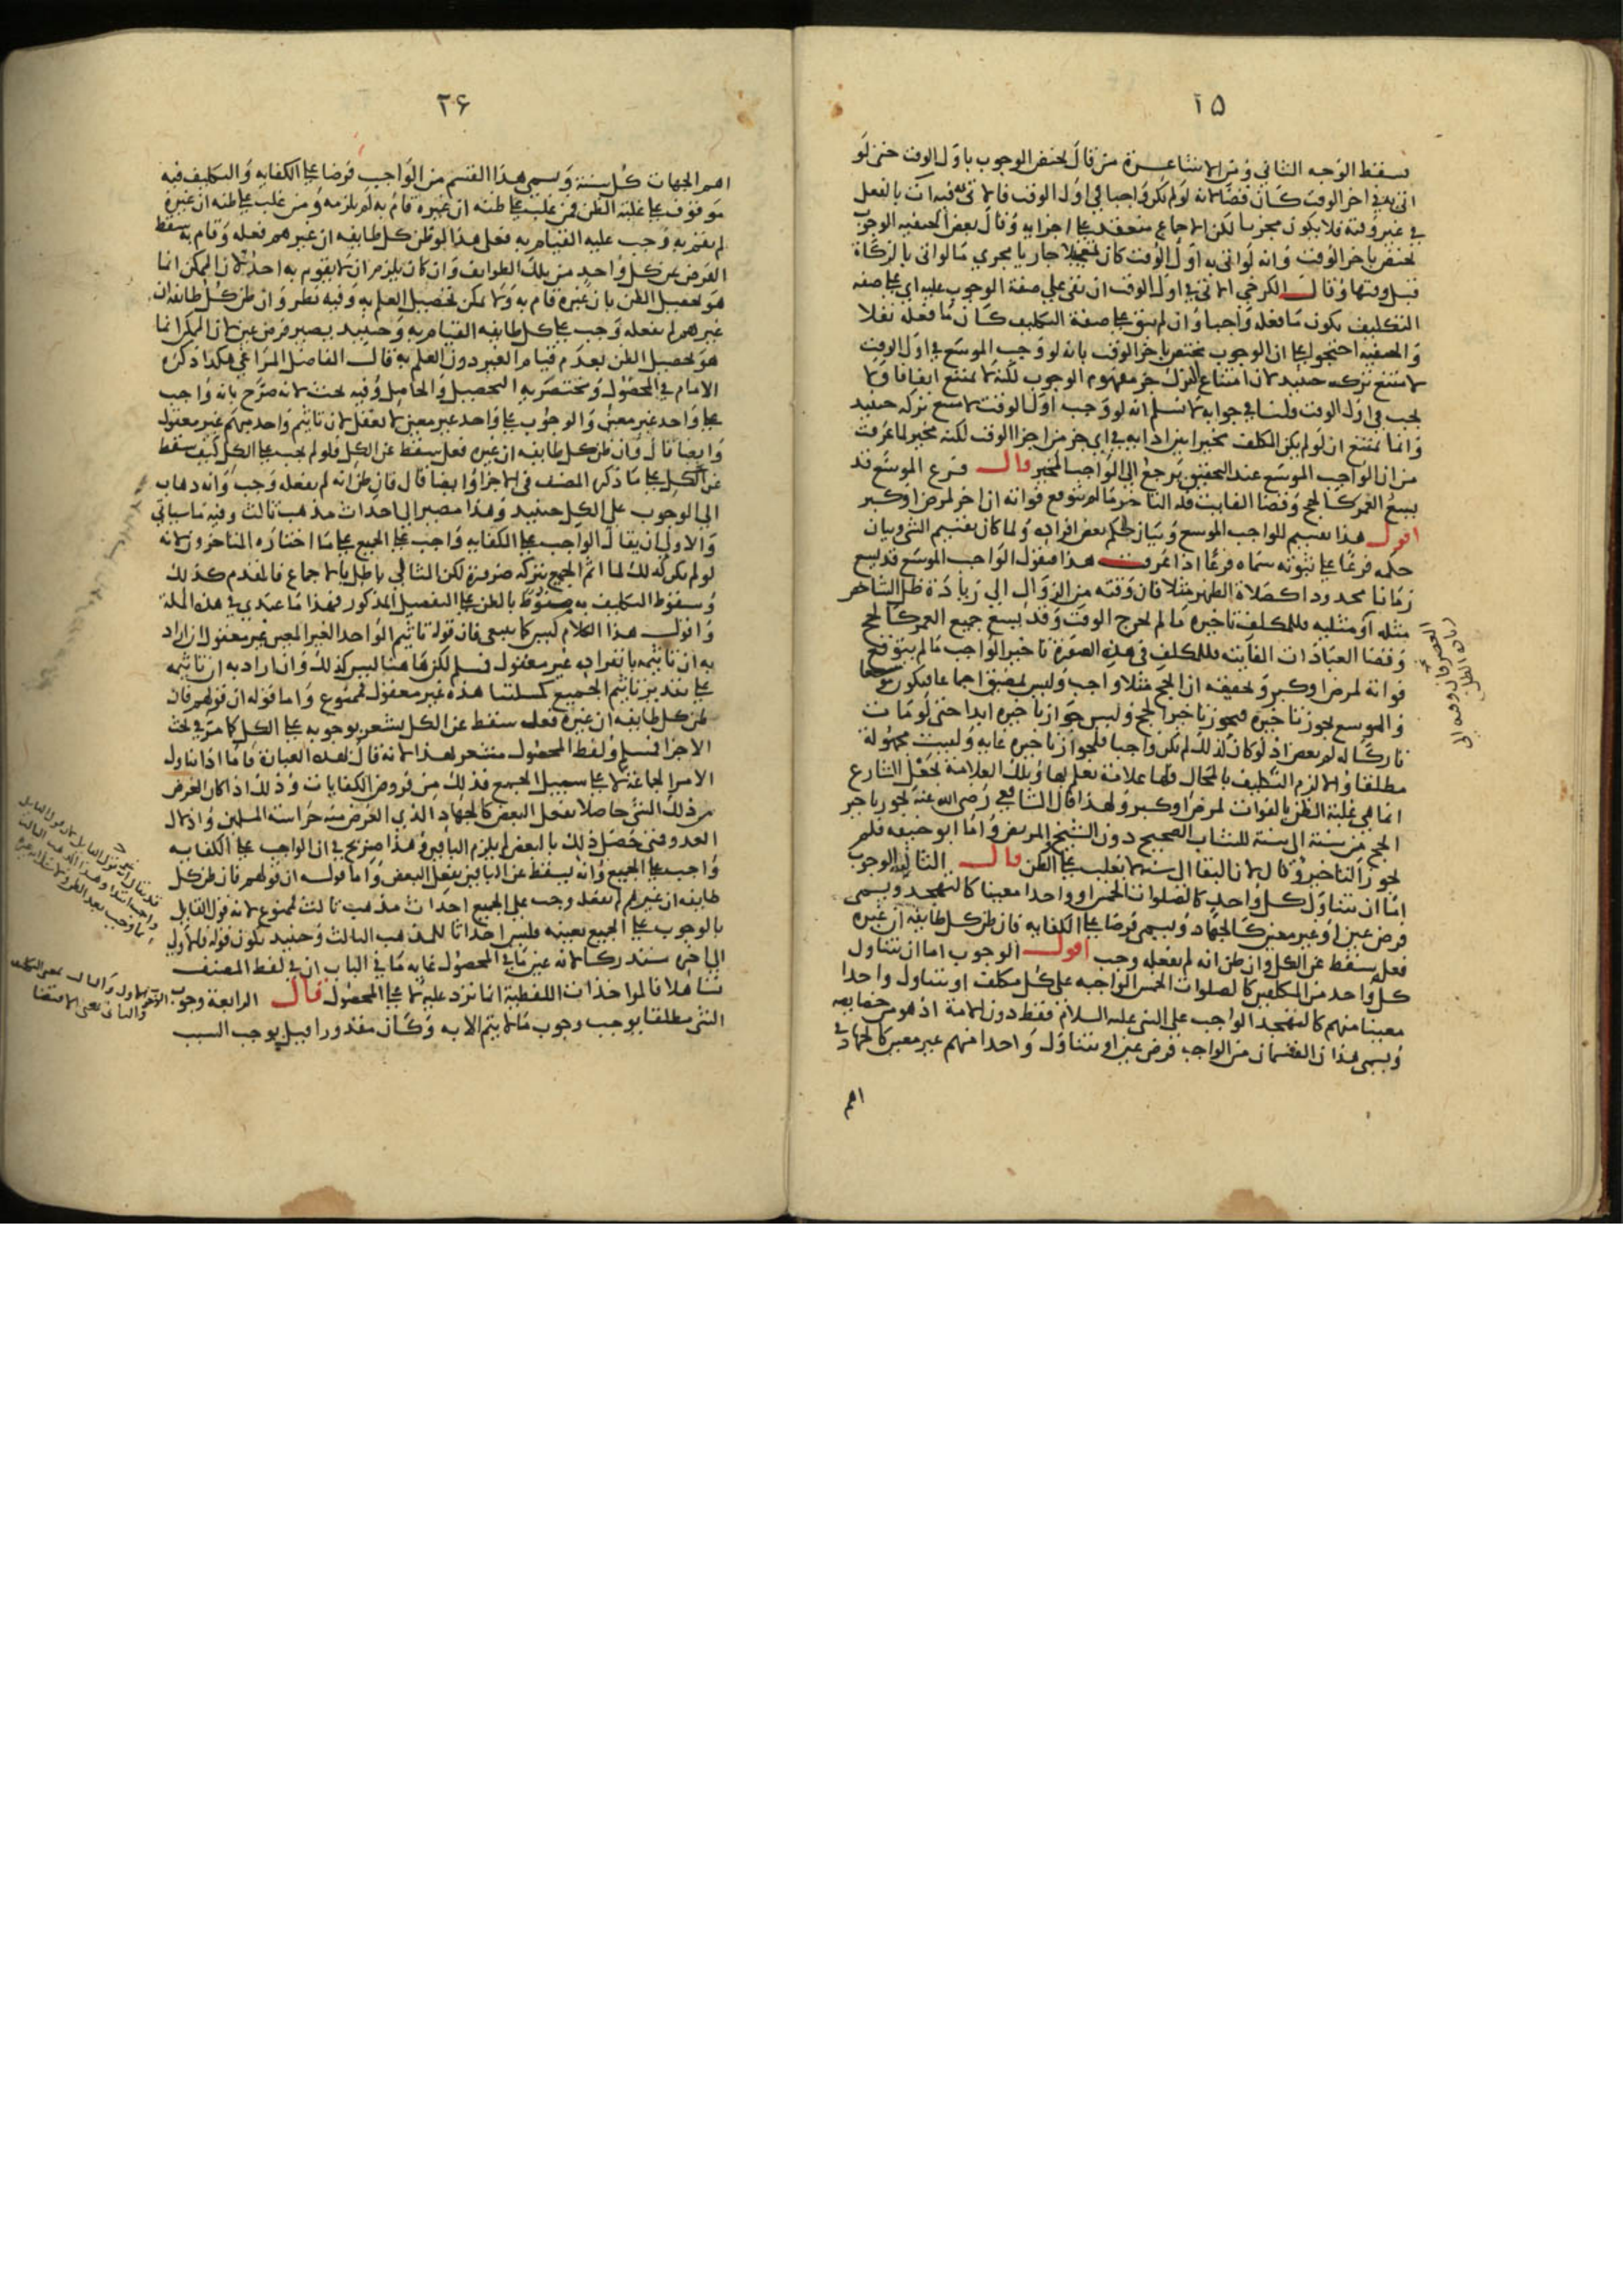 ٢٥
سقط الوجه الثاني ومن الاشاعرة من قال يختص الوجوب باول الوقت حتى لو
اتى به في اخر الوقت كان قضا لانه لو لم يكن واجبا في اول الوقت فالاتي به فيه ات بالفعل
في غير وقته فلا يكون مجزيا لكن الاجماع منعقد على اجزايه وقال بعض الحنفيه الوجوب
يختص باخر الوقت وانه لو اتى به اول الوقت كان تعجيلا جاريا مجرى ما لو اتى بالزكاة
قبل وقتها وقال الكرخي الاتي في اول الوقت ان بقى على صفة الوجوب عليه اي على صفه
التكليف يكون ما فعله واجبا وان لم يبق على صفة التكليف كان ما فعله نفلا
والحنفيه احتجوا على ان الوجوب يختص باخر الوقت بانه لو وجب الموسع في اول الوقت
لامتنع تركه حينيد لان امتناع الترك جز مفهوم الوجوب لكنه لا يمتنع اتفاقا ولا
يجب في اول الوقت قلنا في جوابه لا نسلم انه لو وجب اول الوقت لامتنع تركه حينيد
وانما يمتنع ان لو لم يكن المكلف مخيرا بين ادايه في اي جز من اجزا الوقت لكنه مخير لما عرفت
من ان الواجب الموسع عند التحقيق يرجع الى الواجب المخير قال فرع الموسع قد
يسع العمر كالحج وقضا الفايت فله التاخير ما لم يتوقع فواته ان اخر لمرض او كبر
اقول هذا تقسيم للواجب الموسع وبيان لحكم بعض افراده ولما كان تقسيم الشي وبيان
حكمه فرعا على ثبوته سماه فرعا اذا عرفت هذا فنقول الواجب الموسع قد يسع
زمانا محدودا كصلاة الظهر مثلا فان وقته من الزوال الى زيادة ظل الشاخص
مثله او مثليه فللمكلف تاخيره ما لم يخرج الوقت وقد يسع جميع العمر كالحج
وقضا العبادات الفايته فللمكلف في هذه الصورة تاخير الواجب ما لم يتوقع
فواته لمرض او كبر وتحقيقه ان الحج مثلا واجب وليس بمضيق اجماعا فيكون موسعا
والموسع يجوز تاخيره فيجوز تاخير الحج وليس جواز تاخيره ابدا حتى لو مات
تاركا له لم يعص اذ لو كان كذلك لم يكن واجبا فلجواز تاخيره غايه وليست مجهولة
مطلقا والا لزم التكليف بالمحال فلها علامة تعلم بها وتلك العلامة بجعل الشارع
انما هي غلبة الظن بالفوات لمرض او كبر ولهذا قال الشافعي رضى الله عنه يجوز تاخير
الحج من سنة الى سنة للشاب الصحيح دون الشيخ المريض واما ابو حنيفه فلم
يجوز التاخير وقال لان البقا الى سنه لا يغلب على الظن قال الثالثه الوجوب
اما ان يتناول كل واحد كالصلوات الخمس او واحدا معينا كالتهجد ويسمى
فرض عين او غير معين كالجهاد ويسمى فرضا على الكفايه فان ظن كل طايفة ان غيره
فعل سقط عن الكل وان ظن انه لم يفعله وجب اقول الوجوب اما ان يتناول
كل واحد من المكلفين كالصلوات الخمس الواجبه على كل مكلف او يتناول واحدا
معينا منهم كالتهجد الواجب على النبي عليه السلام فقط دون الامة اذ هو من خصايصه
ويسمى هذان القسمان من الواجب فرض عين او يتناول واحدا منهم غير معين كالجهاد في
اهم
٢٦
اهم الجهات كل سنة ويسمى هذا القسم من الواجب فرضا على الكفايه والتكليف فيه
موقوف على غلبة الظن فمن غلب على ظنه ان غيره قام به لم يلزمه ومن غلب على ظنه ان غيره
لم يقم به وجب عليه القيام به فعلى هذا لو ظن كل طايفه ان غيرهم فعله وقام به سقط
الفرض عن كل واحد من تلك الطوايف وان كان يلزم ان لا يقوم به احد لان الممكن انما
هو تحصيل الظن بان غيره قام به ولا يمكن تحصيل العلم به وفيه نظر وان ظن كل طايفة ان
غيرهم لم يفعله وجب على كل طايفه القيام به وحينيد يصير فرض عين لان الممكن انما
هو تحصيل الظن بعدم قيام الغير دون العلم به قال الفاضل المراغي هكذا ذكره
الامام في المحصول ومختصريه التحصيل والحاصل وفيه بحث لانه صرح بانه واجب
على واحد غير معين والوجوب على واحد غير معين لا يعقل لان تاثيم واحد مبهم غير معقول
وايضا قال فان ظن كل طايفه ان غيره فعل سقط عن الكل فلو لم يجب على الكل كيف سقط
عن الكل على ما ذكره المصنف في الاجزا وايضا قال فان ظن انه لم يفعله وجب وانه ذهاب
الى الوجوب على الكل حينيد وهذا مصير الى احداث مذهب ثالث وفيه ما سياتي
والاولى ان يقال الواجب على الكفايه واجب على الجميع على ما اختاره المتاخرون لانه
لو لم يكن كذلك لما اثم الجميع بتركه ضرورة لكن التالي باطل بالاجماع فالمقدم كذلك
وسقوط التكليف به منوط بالظن على التفصيل المذكور فهذا ما عندي في هذه المسلة
واقول هذا الكلام ليس كما ينبغي فان قوله تاثيم الواحد الغير المعين غير معقول ان اراد
به ان تاثيمه بانفراده غير معقول فمسلم لكن ما هنا ليس كذلك وان اراد به ان تاثيمه
على تقدير تاثيم الجميع كمسلتنا هذه غير معقول فممنوع واما قوله ان قولهم فان
ظن كل طايفه ان غيره فعله سقط عن الكل يشعر بوجوبه على الكل كما مر في بحث
الاجزا فمسلم ولفظ المحصول مشعر بهذا لانه قال بهذه العبارة فاما اذا تناول
الامر الجماعة لا على سبيل الجميع فذلك من فروض الكفايات وذلك اذا كان الغرض
من ذلك الشي حاصلا بفعل البعض كالجهاد الذي الغرض منه حراسة المسلمين واذلال
العدو فمتى حصل ذلك بالبعض لم يلزم الباقين وهذا صريح في ان الواجب على الكفايه
واجب على الجميع وانه يسقط عن الباقين بفعل البعض واما قوله ان قولهم فان ظن كل
طايفه ان غيرهم لم يفعله وجب على الجميع احداث مذهب ثالث فممنوع لانه قول القايل
بالوجوب على الجميع بعينه فليس احداثا للمذهب الثالث وحينيد يكون قوله فالاولى
الى اخره مستدركا لانه عين ما في المحصول غايه ما في الباب ان في لفظ المصنف
تساهلا فالمواخذات اللفظية انما ترد عليه لا على المحصول قال الرابعة وجوب
الشي مطلقا يوجب وجوب ما لا يتم الا به وكان مقدورا قيل يوجب السبب